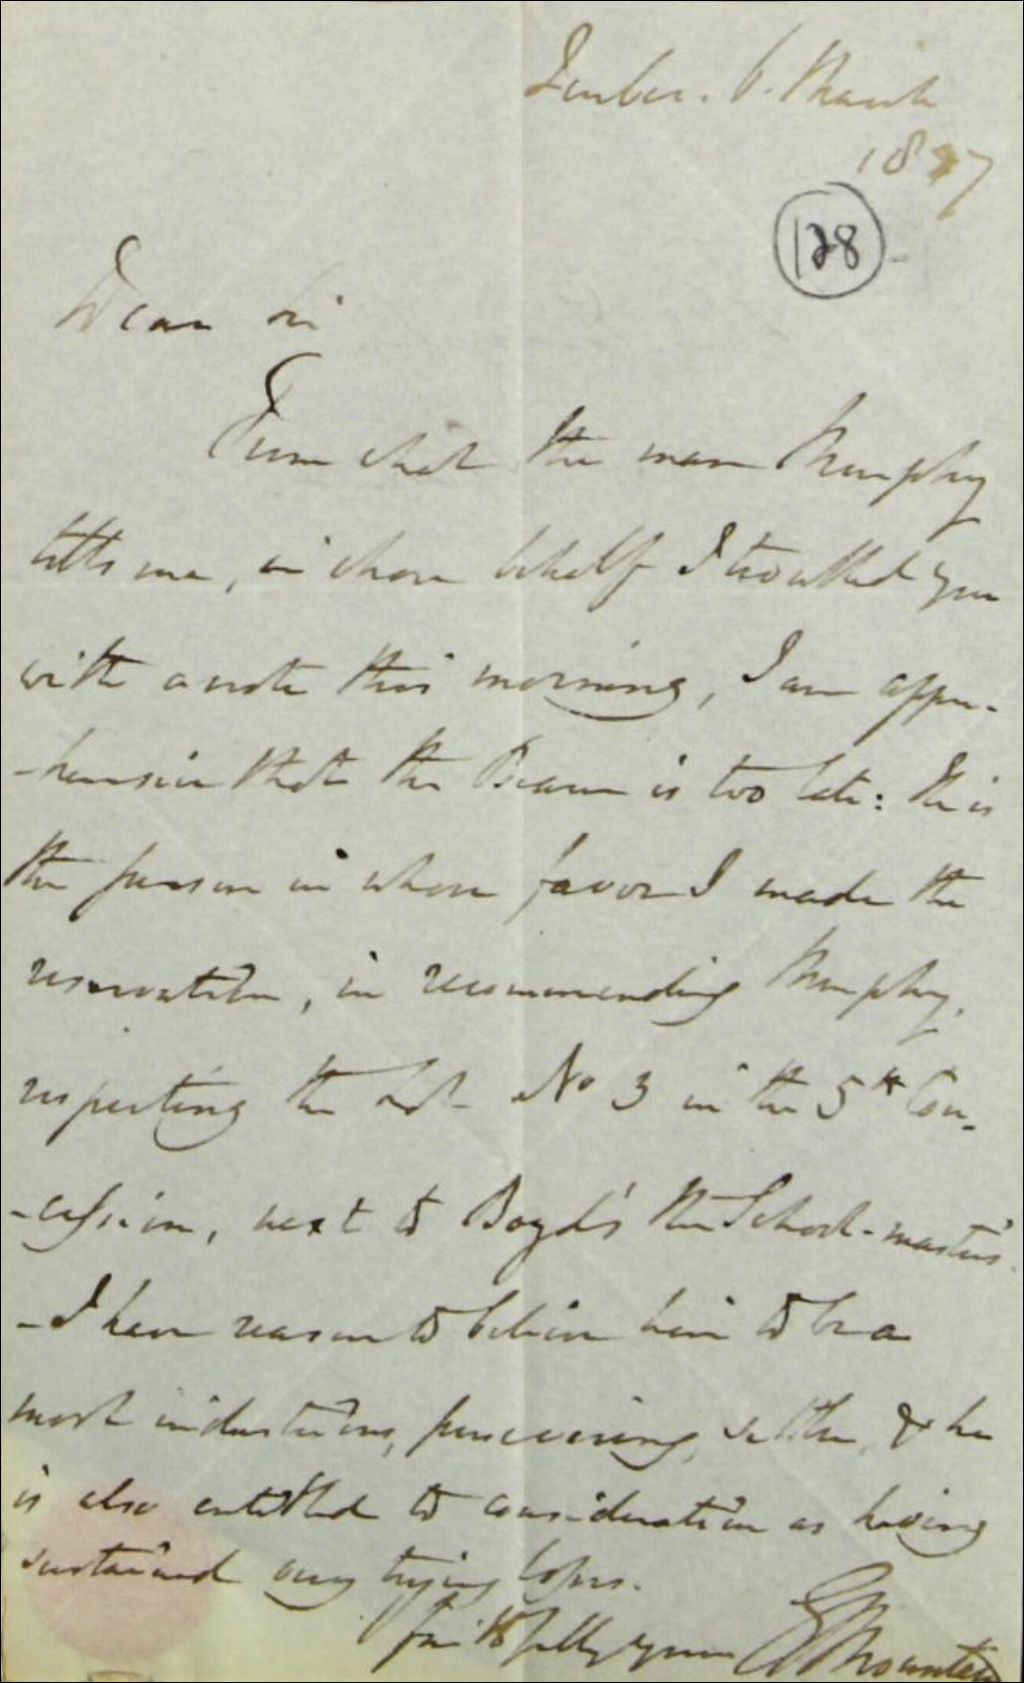 Quebec. 6. March
1837
128
Dear Sir
From what the man Murphy
tells me, in whose behalf I troubled you
with a note this morning, I am appre-
-hensive that the is too late: He is
the person in whose favor I made the
reservation, in recommending Murphy,
respecting the Lot No 3 in the 5th Con-
-cession, next to Boyd's the School-master's.
- I have reason to believe him to be a
most industrious, persevering, settler, & he
is also entitled to consideration as having
sustained very trying losses.
Faithfully yours G Mountain